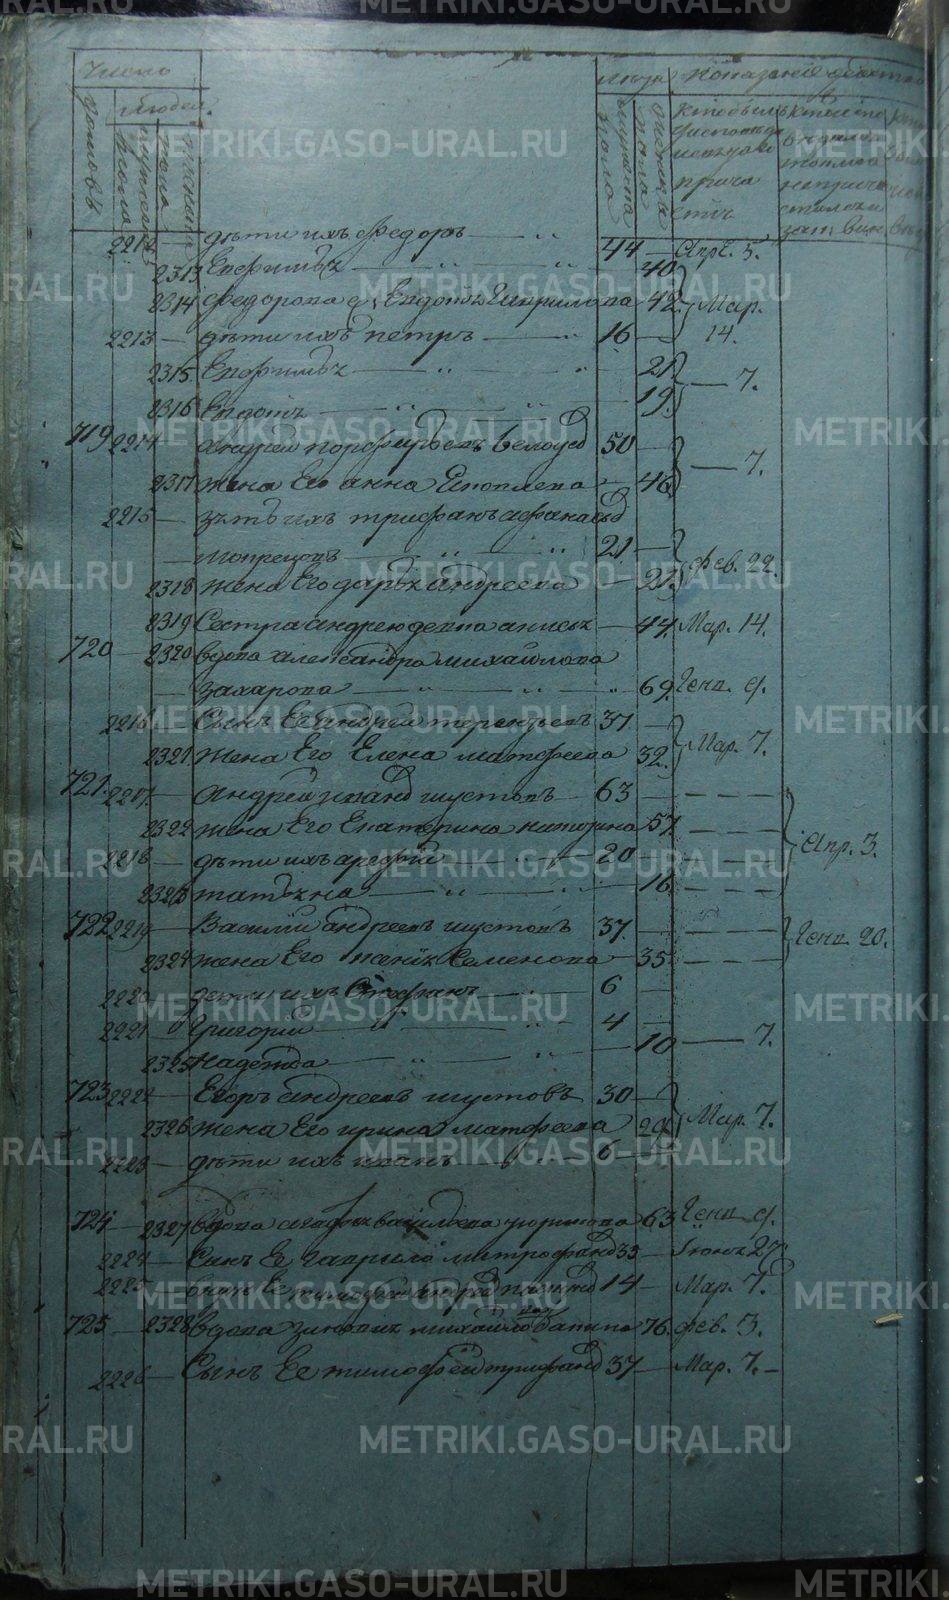 Число
Людей
домовъ
мужеска
пола
женска
Лета
мужеска
пола
женска
пола
Показание
2212 — дѣти ихъ Федоръ — 44 — Апр. 5.
2313 Евфимья — 40
2314 Федорова ж. Евдокья Гаврилова 42 Мар.
2213 — дѣти ихъ Петръ — 16 — 14.
2315 Евфимья — 21
— 7.
2316 Евдокья — 19
719 2214 — Андрей Порфирьевъ Белоусо 50 —
— 7.
2317 жена Его Анна Яковлева — 46
2215 — зять ихъ Трифанъ Афанасье
Мокрецовъ — 21 — Фев. 22.
2318 жена Его Дарья Андреева — 22
2319 Сестра Андрею девка Анисья — 44 Мар. 14.
720 — 2320 вдова Александра Михайлова
Захарова — 69 Генв. 9.
2216 — Сынъ Ее Андрей Терентьевъ 37 —
Мар. 7.
2321 жена Его Елена Матфеева 32
721. 2217 — Андрей Иванов Шустовъ — 63 —
2322 жена Его Екатерина Никитина 57
Апр. 3.
2218 — дѣти ихъ Аредий — 20 —
2323 Татьяна — 16
722 2219 — Василий Андреевъ Шустовъ 37 —
Генв. 20.
2324 жена Его Ксения Семенова — 35
2220 — дети ихъ Стефанъ — 6
2221 Григорий — 4 —
2325 Надежда — 10 — 7.
723 2222 — Егоръ Андреевъ Шустовъ 30 —
2326 жена Его Ирина Матфеева 29 Мар. 7.
2223 — дѣти ихъ Иванъ — 6 —
724 — 2327 вдова Агафья Васильева 63 Генв. 9.
2224 — Сынъ Ее Гаврило Митрофанов 33 — Іюня 27.
2225 — внукъ Ее Тимофей Андреев 14 — Мар. 7.
725 — 2328 вдова Зиновия Михайлова Бабина 76. Фев. 3.
2226 — Сынъ Ее Тимофей Трифанов 37 — Мар. 7. —
METRIKI.GASO-URAL.RU